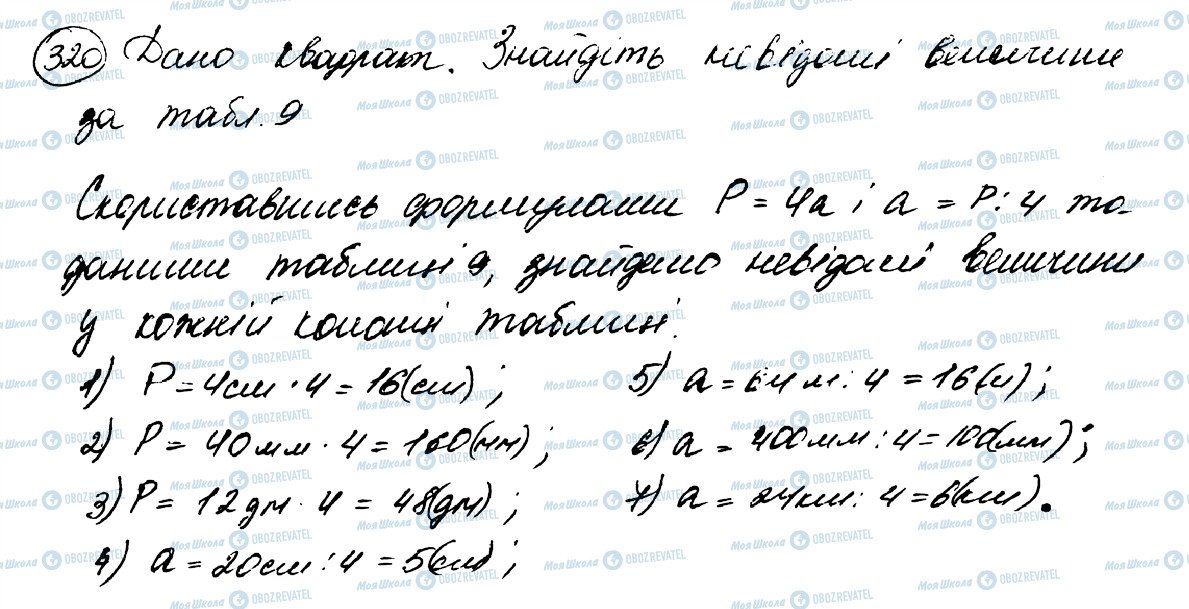 320 Дано квадрат. Знайдіть невідомі величини
за табл. 9
Скориставшись формулами P = 4a і a = P : 4 та
даними таблиці 9, знайдемо невідомі величини
у кожній колонці таблиці.
1) P = 4см · 4 = 16(см);
2) P = 40мм · 4 = 160(мм);
3) P = 12дм · 4 = 48(дм);
4) a = 20см : 4 = 5(см);
5) a = 64м : 4 = 16(м);
6) a = 400мм : 4 = 100(мм);
7) a = 24км : 4 = 6(км).
Моя Школа OBOZREVATEL